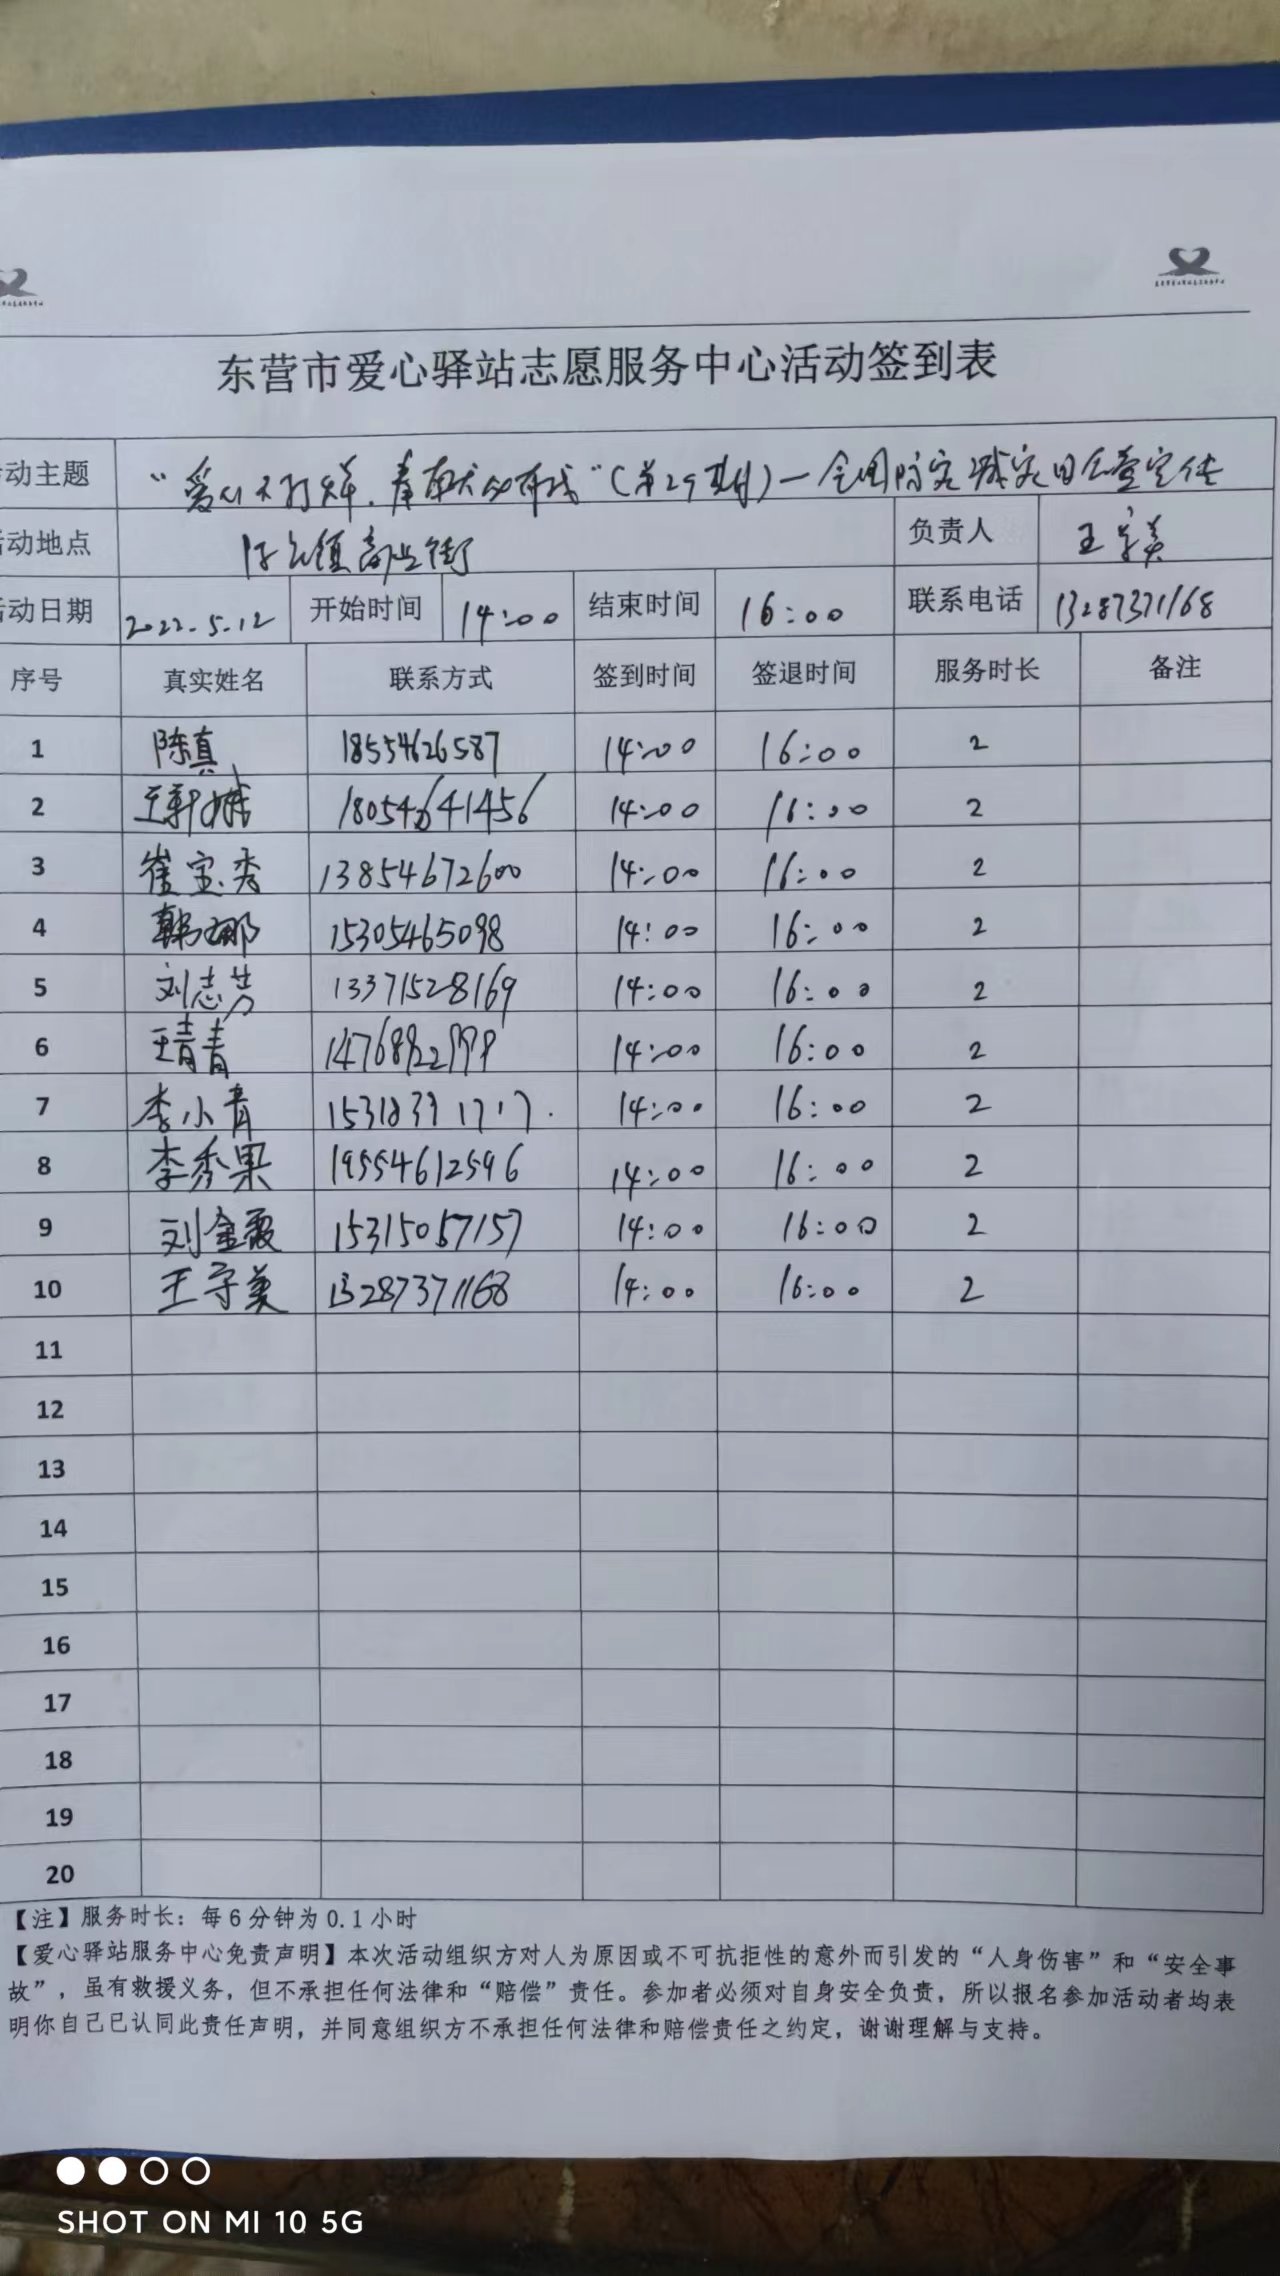 东营市爱心驿站志愿服务中心活动签到表
动主题 “爱心不打烊.奉献在城”(第29期)—全国防灾减灾日宣传
动地点 镇商业街 负责人 王守美
动日期 2022.5.12 开始时间 14:00 结束时间 16:00 联系电话 13287371168
序号 真实姓名 联系方式 签到时间 签退时间 服务时长 备注
1 陈真 18554626587 14:00 16:00 2
2 18054641456 14:00 16:00 2
3 崔宝秀 13854672600 14:00 16:00 2
4 韩娜 15305465098 14:00 16:00 2
5 刘志芳 13371528169 14:00 16:00 2
6 王青青 14:00 16:00 2
7 李小青 14:00 16:00 2
8 李秀果 19554612596 14:00 16:00 2
9 刘金霞 15315057157 14:00 16:00 2
10 王守美 13287371168 14:00 16:00 2
11
12
13
14
15
16
17
18
19
20
【注】服务时长：每6分钟为0.1小时
【爱心驿站服务中心免责声明】本次活动组织方对人为原因或不可抗拒性的意外而引发的“人身伤害”和“安全事
故”，虽有救援义务，但不承担任何法律和“赔偿”责任。参加者必须对自身安全负责，所以报名参加活动者均表
明你自己已认同此责任声明，并同意组织方不承担任何法律和赔偿责任之约定，谢谢理解与支持。
SHOT ON MI 10 5G